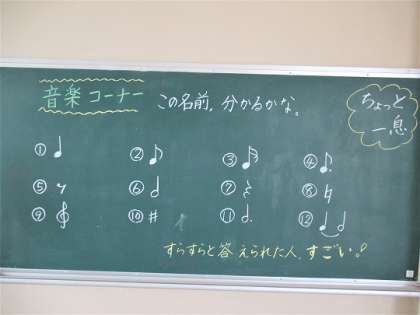 音楽コーナー この名前，分かるかな。
ちょっと
一息
① ② ③ ④
⑤ ⑥ ⑦ ⑧
⑨ ⑩ # ⑪ ⑫
すらすらと答えられた人，すごい！